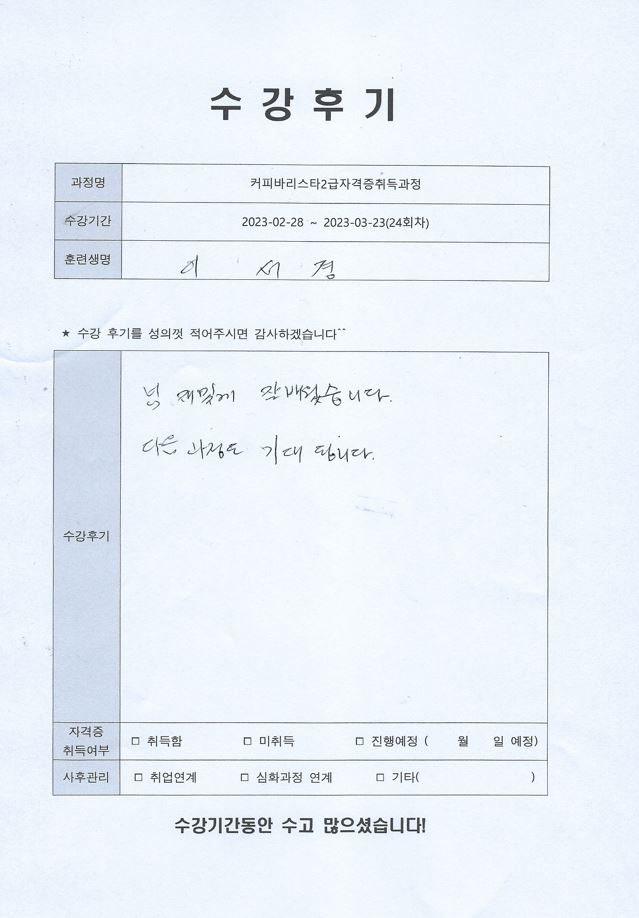 수강후기
과정명 커피바리스타2급자격증취득과정
수강기간 2023-02-28 ~ 2023-03-23(24회차)
훈련생명 이 서 경
★ 수강 후기를 성의껏 적어주시면 감사하겠습니다^^
수강후기
넘 재밌게 잘 배웠습니다.
다음 과정도 기대 됩니다.
자격증
취득여부
□ 취득함 □ 미취득 □ 진행예정 ( 월 일 예정)
사후관리 □ 취업연계 □ 심화과정 연계 □ 기타( )
수강기간동안 수고 많으셨습니다!